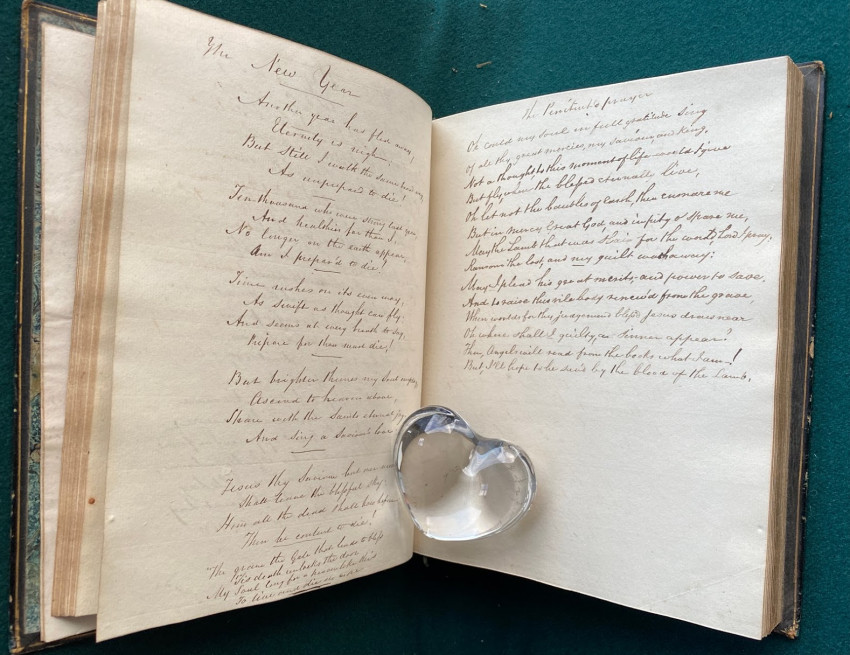 The New Year
Another year has fled away,
Eternity is nigh,
But still I walk the same
As unprepared to die!
Ten thousand who were strong last year
And healthier far than I
No longer on the earth appear,
Am I prepar'd to die!
Time rushes on its own way,
As swift as thought can fly
And seems at every breath to say,
Prepare for thou must die!
But brighter themes my soul
Ascend to heaven above,
Share with the Saints eternal joy
And sing a Saviour's love
Jesus thy Saviour
Shall the blissful sky
Him all the dead shall
Then be content to die!
The grave the Gate that leads to bliss
Tis death unlocks the door
My Soul long for a
To live and die no more
The Penitent's prayer
Oh could my soul in full gratitude sing
of all thy great mercies, my saviour, and king,
Not a thought to this moment of life would I give
But fly, where the blessed eternally live,
Oh let not the baubles of Earth, then ensnare me
But in mercy Great God and in pity O spare me,
May the Lamb that was slain for the world, Lord I pray,
Ransom the lost, and my guilt wash away:
May I plead his great merits, and power to save,
And to raise this vile body renew'd from the grave,
When worlds for thy judgement bless'd Jesus draws near
Oh where shall I guilty, a Sinner appear?
Thy Angels will read from the books what I am!
But, I'll hope to be sav'd by the blood of the Lamb,